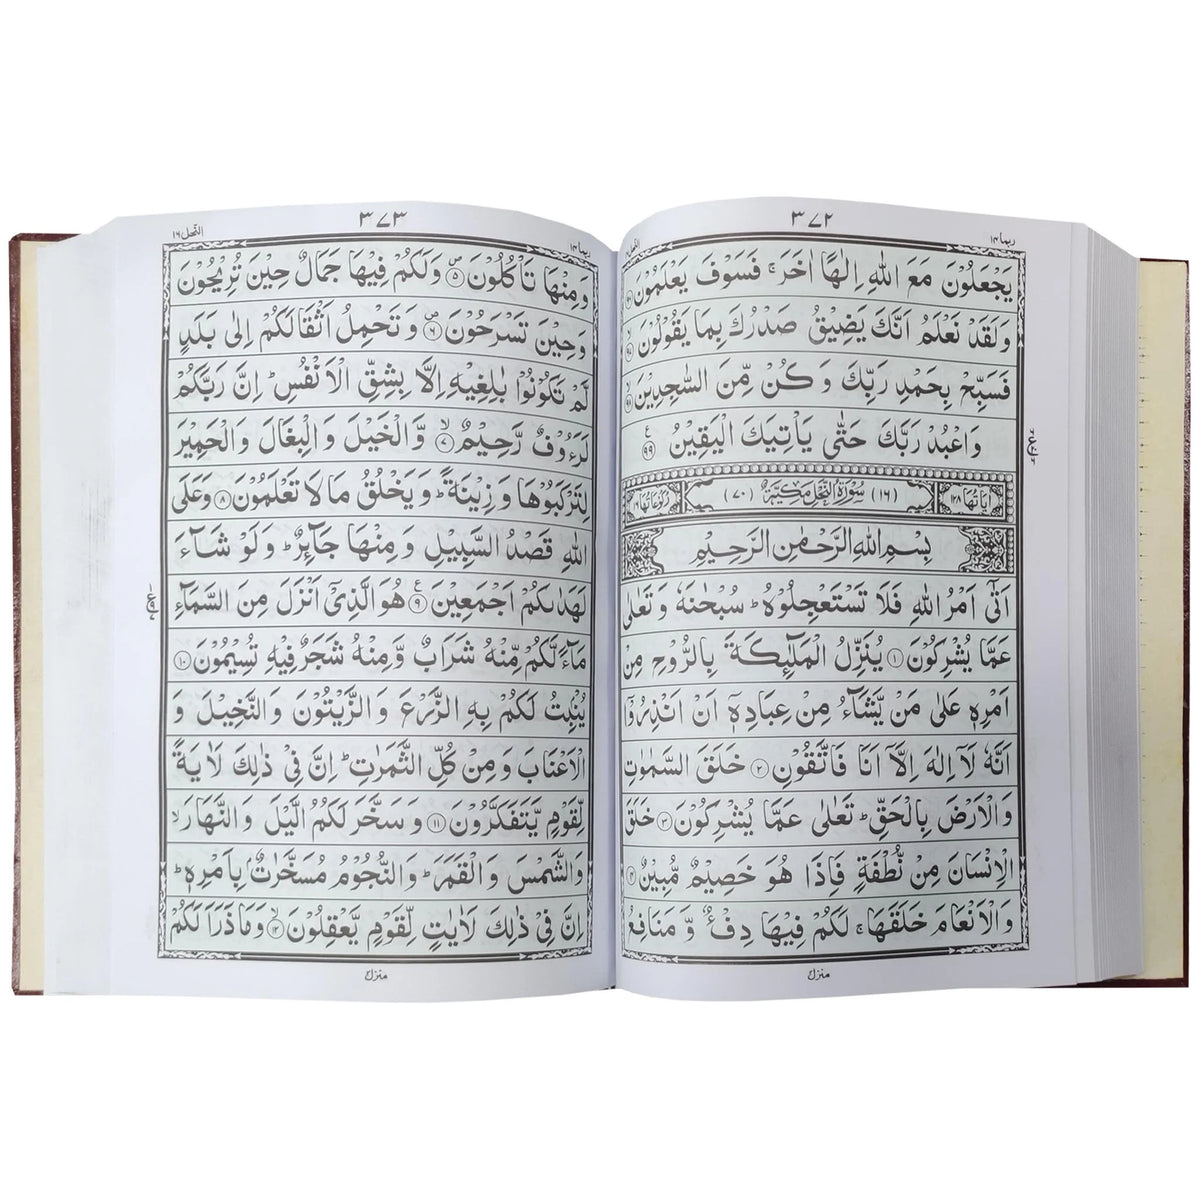 ربما ١٤
٣٧٢
يَجْعَلُوْنَ مَعَ اللهِ اِلٰهًا اٰخَرَ ۚ فَسَوْفَ يَعْلَمُوْنَ ﴿٩٦﴾
وَلَقَدْ نَعْلَمُ اَنَّكَ يَضِيْقُ صَدْرُكَ بِمَا يَقُوْلُوْنَ ﴿٩٧﴾ ۙ
فَسَبِّحْ بِحَمْدِ رَبِّكَ وَ كُنْ مِّنَ السّٰجِدِيْنَ ﴿٩٨﴾ ۙ
وَاعْبُدْ رَبَّكَ حَتّٰى يَاْتِيَكَ الْيَقِيْنُ ﴿٩٩﴾ ع
اٰيَاتُهَا ١٢٨ (١٦) سُوْرَةُ النَّحْلِ مَكِّيَّةٌ (٧٠) رُكُوْعَاتُهَا ١٦
بِسْمِ اللهِ الرَّحْمٰنِ الرَّحِيْمِ
اَتٰۤى اَمْرُ اللهِ فَلَا تَسْتَعْجِلُوْهُ ؕ سُبْحٰنَهٗ وَ تَعٰلٰى
عَمَّا يُشْرِكُوْنَ ﴿١﴾ يُنَزِّلُ الْمَلٰٓئِكَةَ بِالرُّوْحِ مِنْ
اَمْرِهٖ عَلٰى مَنْ يَّشَآءُ مِنْ عِبَادِهٖۤ اَنْ اَنْذِرُوْۤا
اَنَّهٗ لَاۤ اِلٰهَ اِلَّاۤ اَنَا فَاتَّقُوْنِ ﴿٢﴾ خَلَقَ السَّمٰوٰتِ
وَ الْاَرْضَ بِالْحَقِّ ؕ تَعٰلٰى عَمَّا يُشْرِكُوْنَ ﴿٣﴾ خَلَقَ
الْاِنْسَانَ مِنْ نُّطْفَةٍ فَاِذَا هُوَ خَصِيْمٌ مُّبِيْنٌ ﴿٤﴾
وَ الْاَنْعَامَ خَلَقَهَا ۚ لَكُمْ فِيْهَا دِفْءٌ وَّ مَنَافِعُ
منزل
النحل ١٦
٣٧٣
ربما ١٤
وَمِنْهَا تَاْكُلُوْنَ ﴿٥﴾ ص وَلَكُمْ فِيْهَا جَمَالٌ حِيْنَ تُرِيْحُوْنَ
وَحِيْنَ تَسْرَحُوْنَ ﴿٦﴾ ص وَ تَحْمِلُ اَثْقَالَكُمْ اِلٰى بَلَدٍ
لَّمْ تَكُوْنُوْا بٰلِغِيْهِ اِلَّا بِشِقِّ الْاَنْفُسِ ؕ اِنَّ رَبَّكُمْ
لَرَءُوْفٌ رَّحِيْمٌ ﴿٧﴾ ۙ وَّ الْخَيْلَ وَ الْبِغَالَ وَ الْحَمِيْرَ
لِتَرْكَبُوْهَا وَ زِيْنَةً ؕ وَ يَخْلُقُ مَا لَا تَعْلَمُوْنَ ﴿٨﴾ وَعَلَى
اللهِ قَصْدُ السَّبِيْلِ وَ مِنْهَا جَآئِرٌ ؕ وَلَوْ شَآءَ
لَهَدٰىكُمْ اَجْمَعِيْنَ ﴿٩﴾ ع هُوَ الَّذِيْۤ اَنْزَلَ مِنَ السَّمَآءِ
مَآءً لَّكُمْ مِّنْهُ شَرَابٌ وَّ مِنْهُ شَجَرٌ فِيْهِ تُسِيْمُوْنَ ﴿١٠﴾
يُنْۢبِتُ لَكُمْ بِهِ الزَّرْعَ وَ الزَّيْتُوْنَ وَ النَّخِيْلَ وَ
الْاَعْنَابَ وَ مِنْ كُلِّ الثَّمَرٰتِ ؕ اِنَّ فِيْ ذٰلِكَ لَاٰيَةً
لِّقَوْمٍ يَّتَفَكَّرُوْنَ ﴿١١﴾ وَ سَخَّرَ لَكُمُ الَّيْلَ وَ النَّهَارَ ۙ
وَ الشَّمْسَ وَ الْقَمَرَ ؕ وَ النُّجُوْمُ مُسَخَّرٰتٌۢ بِاَمْرِهٖ ؕ
اِنَّ فِيْ ذٰلِكَ لَاٰيٰتٍ لِّقَوْمٍ يَّعْقِلُوْنَ ﴿١٢﴾ ۙ وَمَا ذَرَاَ لَكُمْ
منزل